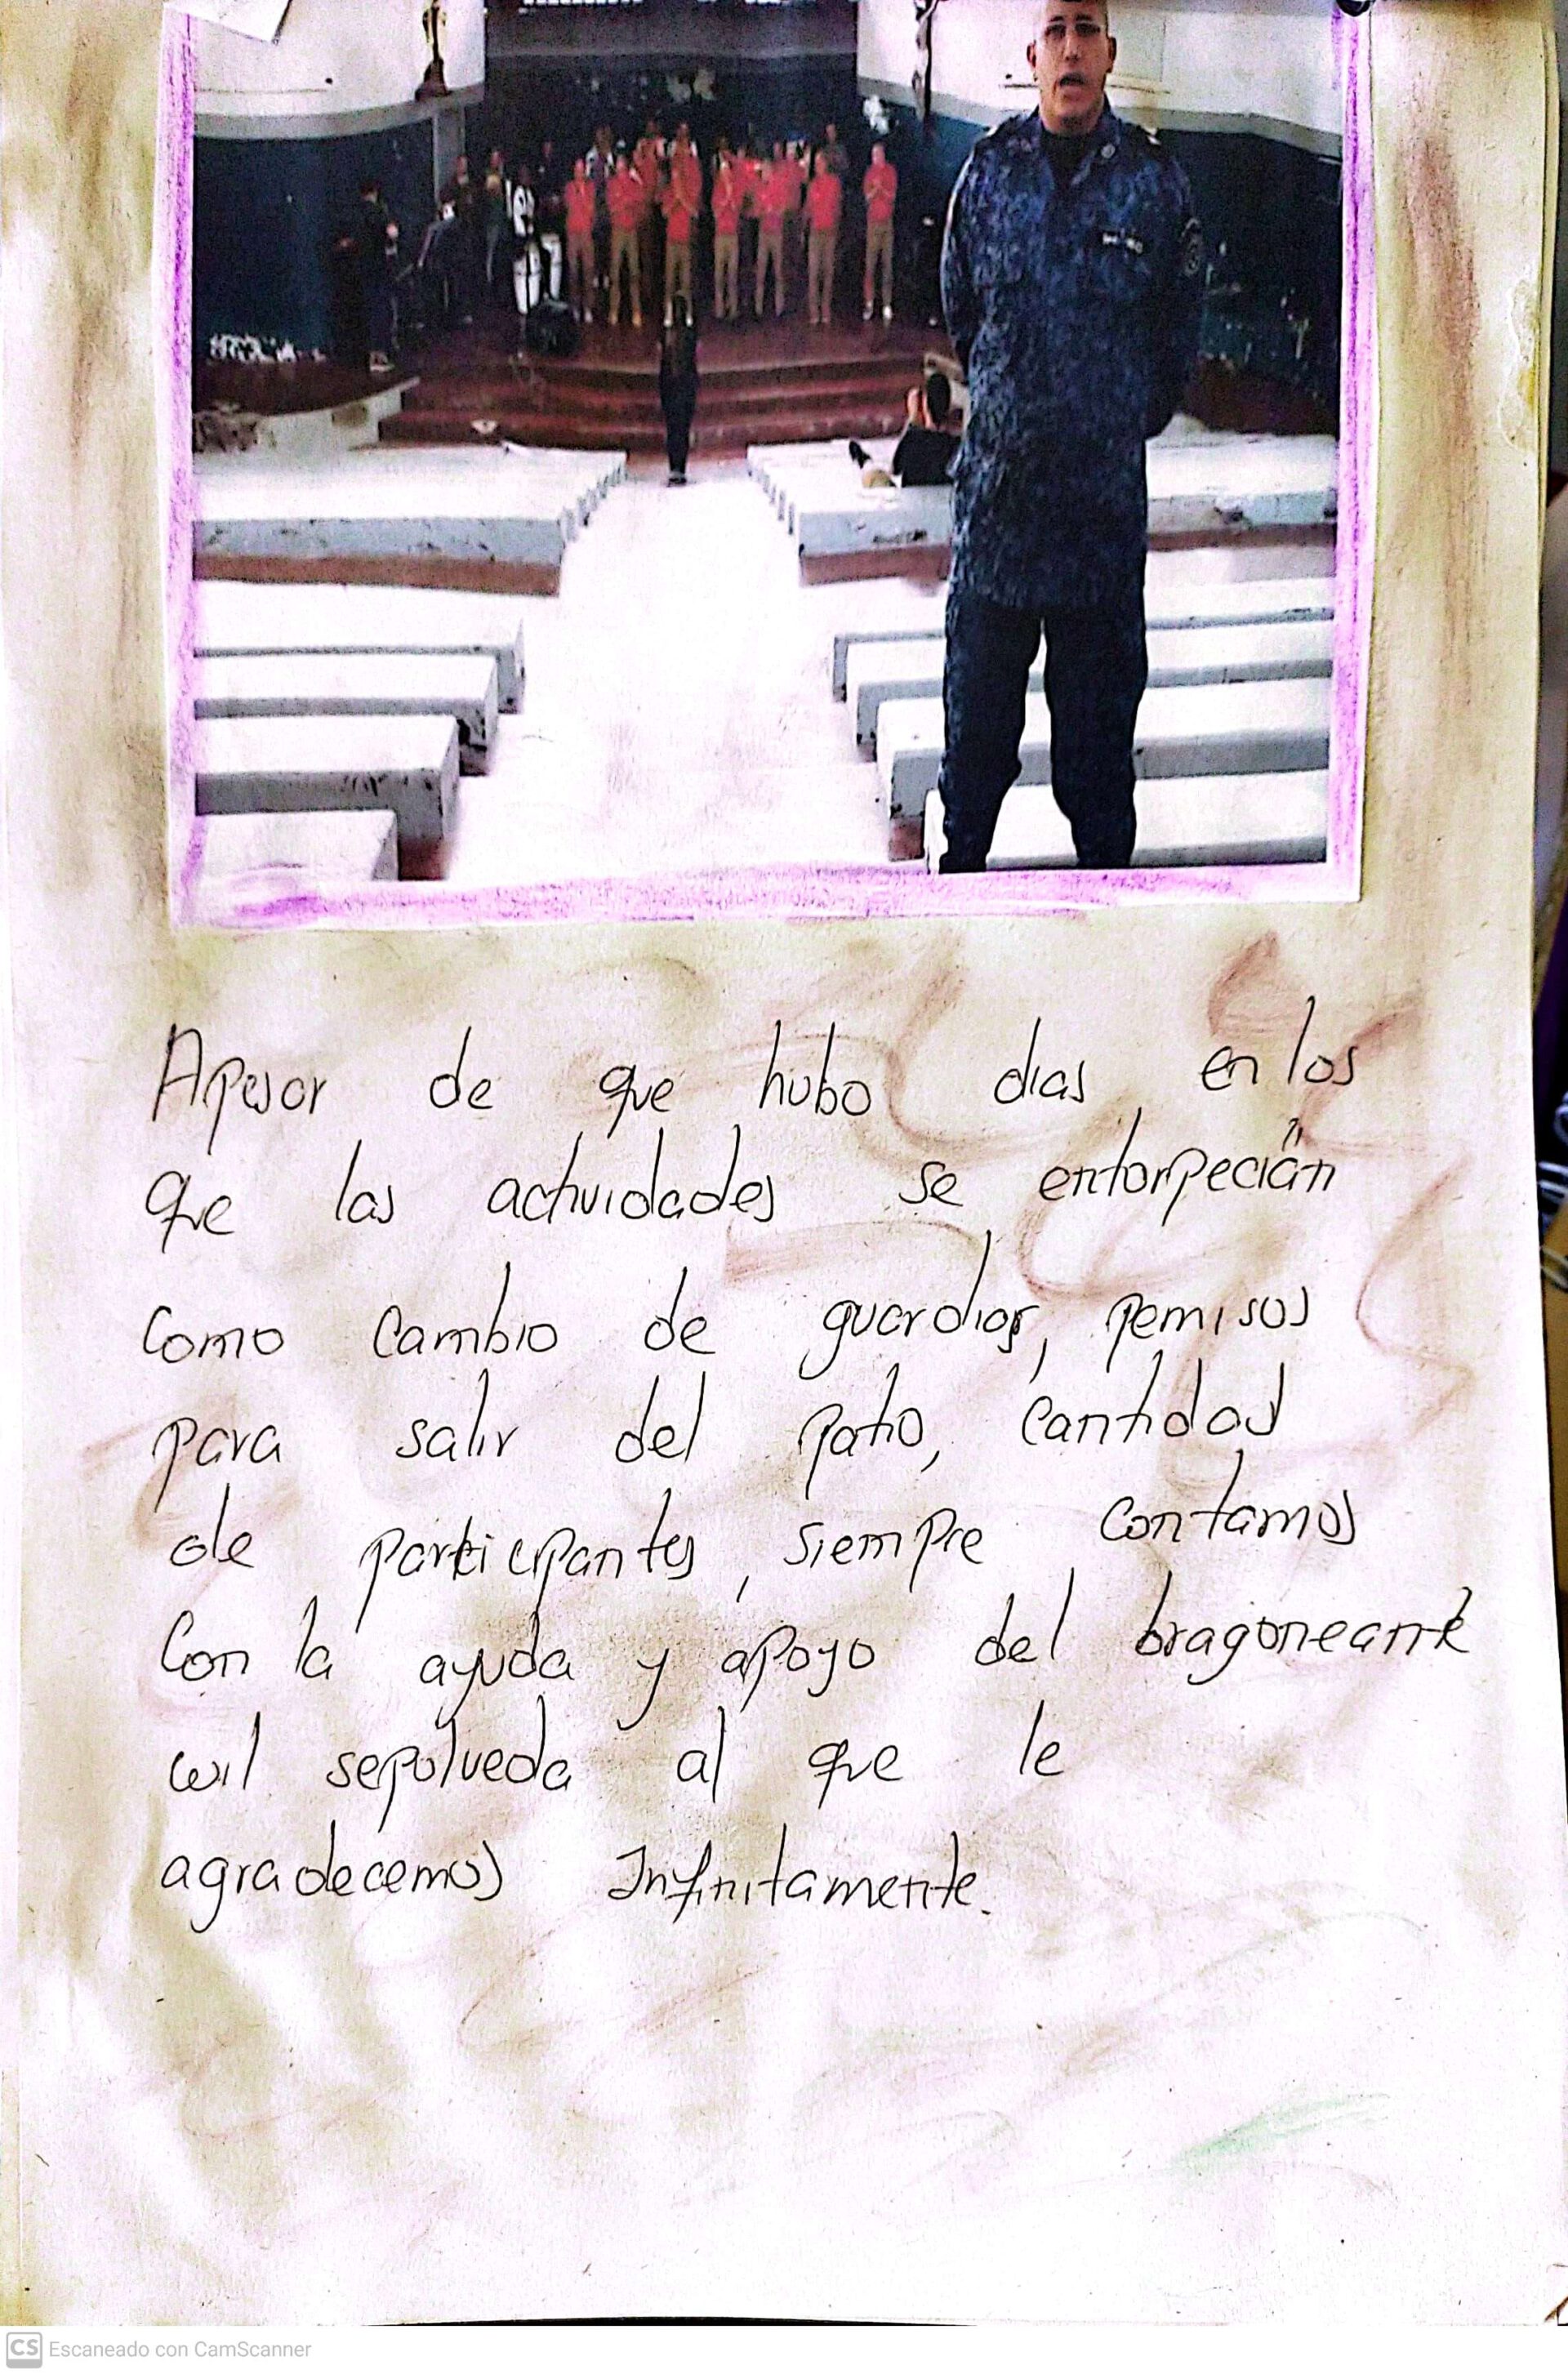 Apesar de que hubo dias en los
que las actividades se entorpecián
como cambio de guardias, pemisos
para salir del patio, cantidad
de participantes, siempre contamos
Con la ayuda y apoyo del bragoneante
wil sepulveda al que le
agradecemos Infinitamente.
CS Escaneado con CamScanner